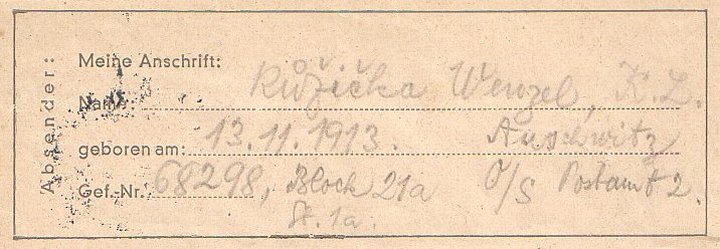 Absender:
Meine Anschrift:
Name: Růžička Wenzel, K.L.
geboren am: 13.11.1913. Auschwitz
Gef.-Nr. 68298, Block 21a O/S Postamt 2.
St. 1a.